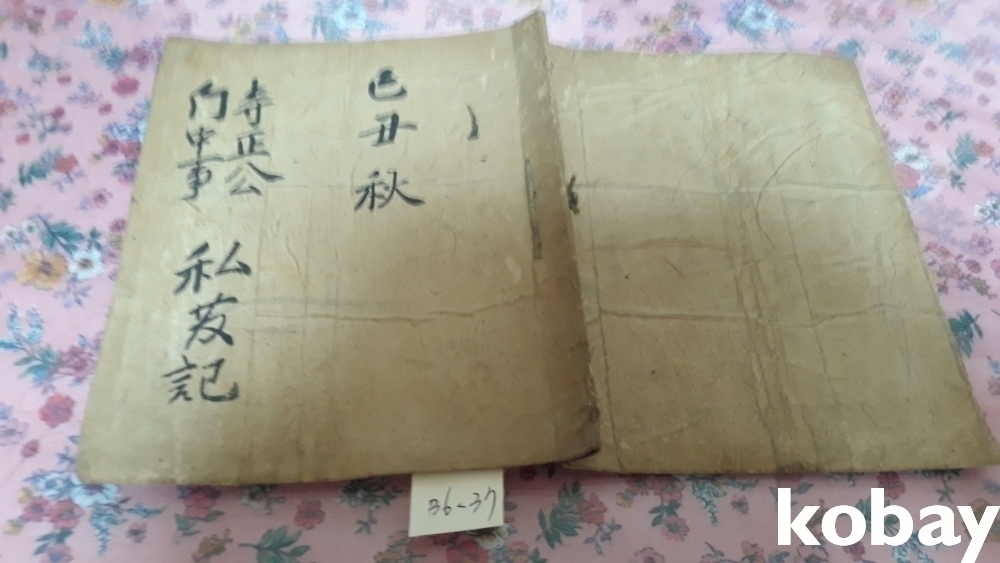 己丑秋
寺正公
門中事
私茇記
36-37
kobay